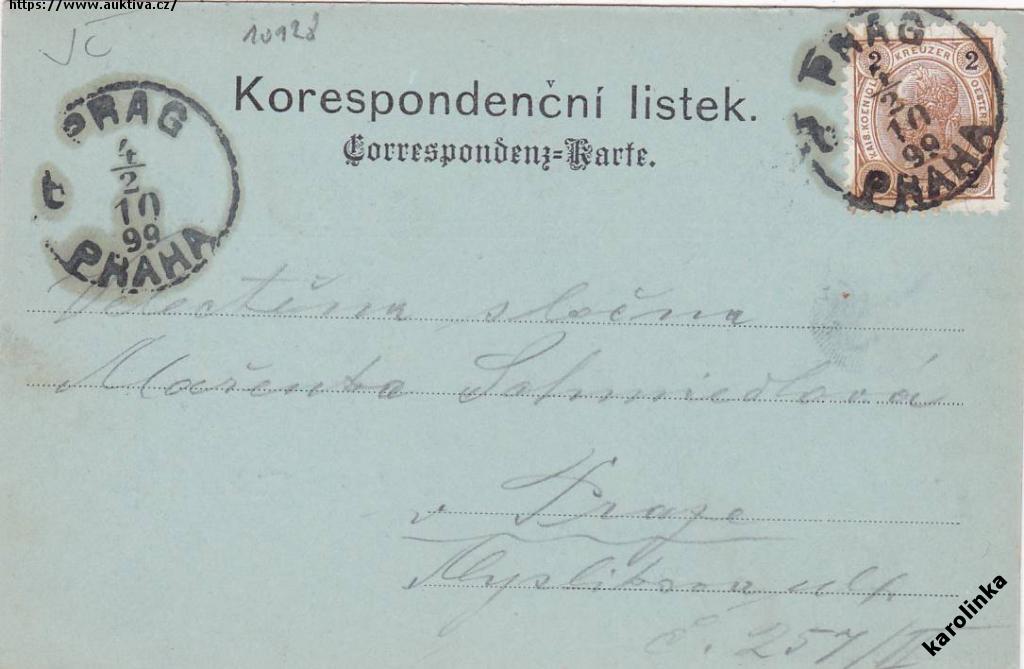 https://www.auktiva.cz/
10928
Korespondenční lístek.
Correspondenz-Karte.
PRAG
4/2
10
99
PRAHA
PRAG
10
99
PRAHA
2 KREUZER 2
Velectěná slečna
Mařenka Schmiedlová
v Praze
Myslíkova ul.
č. 257/II
karolinka